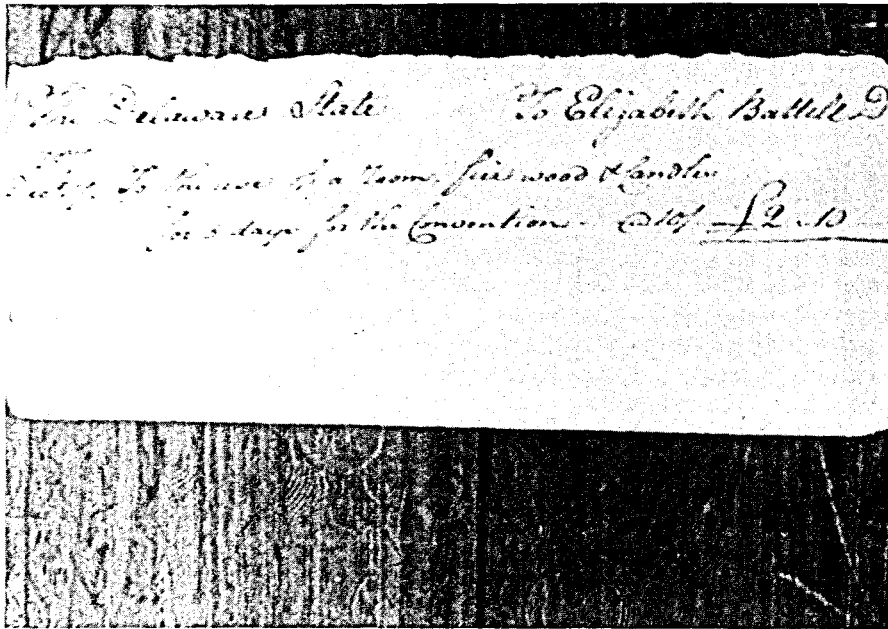 The Delaware State To Elizabeth Battell D
To the use of a room, fire wood & Candles
for 5 days for the Convention - @ 10/ £2 .10